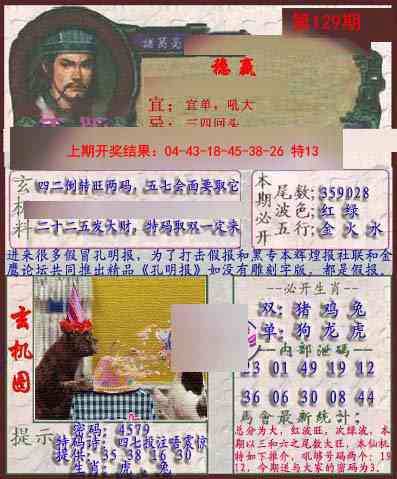 第129期
諸葛亮
稳赢
宜：宜单，吼大
忌：三四回头
上期开奖结果：04-43-18-45-38-26 特13
玄机料
四二倒转旺两码，五七会面要取它
二十二五发大财，特码取双一定来
本期必开
尾数：359028
波色：红 绿
五行：金 火 水
进来很多假冒孔明报，为了打击假报和黑专本辉煌报社联和金
鹰论坛共同推出精品《孔明报》如没有雕刻字版，都是假报。
玄机图
--必开生肖--
双：猪 鸡 兔
单：狗 龙 虎
--内部泄码--
23 01 49 19 12
36 06 30 08 44
马會最新統計：
总分为大，红波旺，次绿波，本
期以三和六之尾数大旺，本仙机
特如下推介，吼够号码两个：19
12，今期送与大家的密码为3，
提示
密码：4579
特码诗：四七投注唔震惊
提供：35 38 16 30
生肖：虎 兔